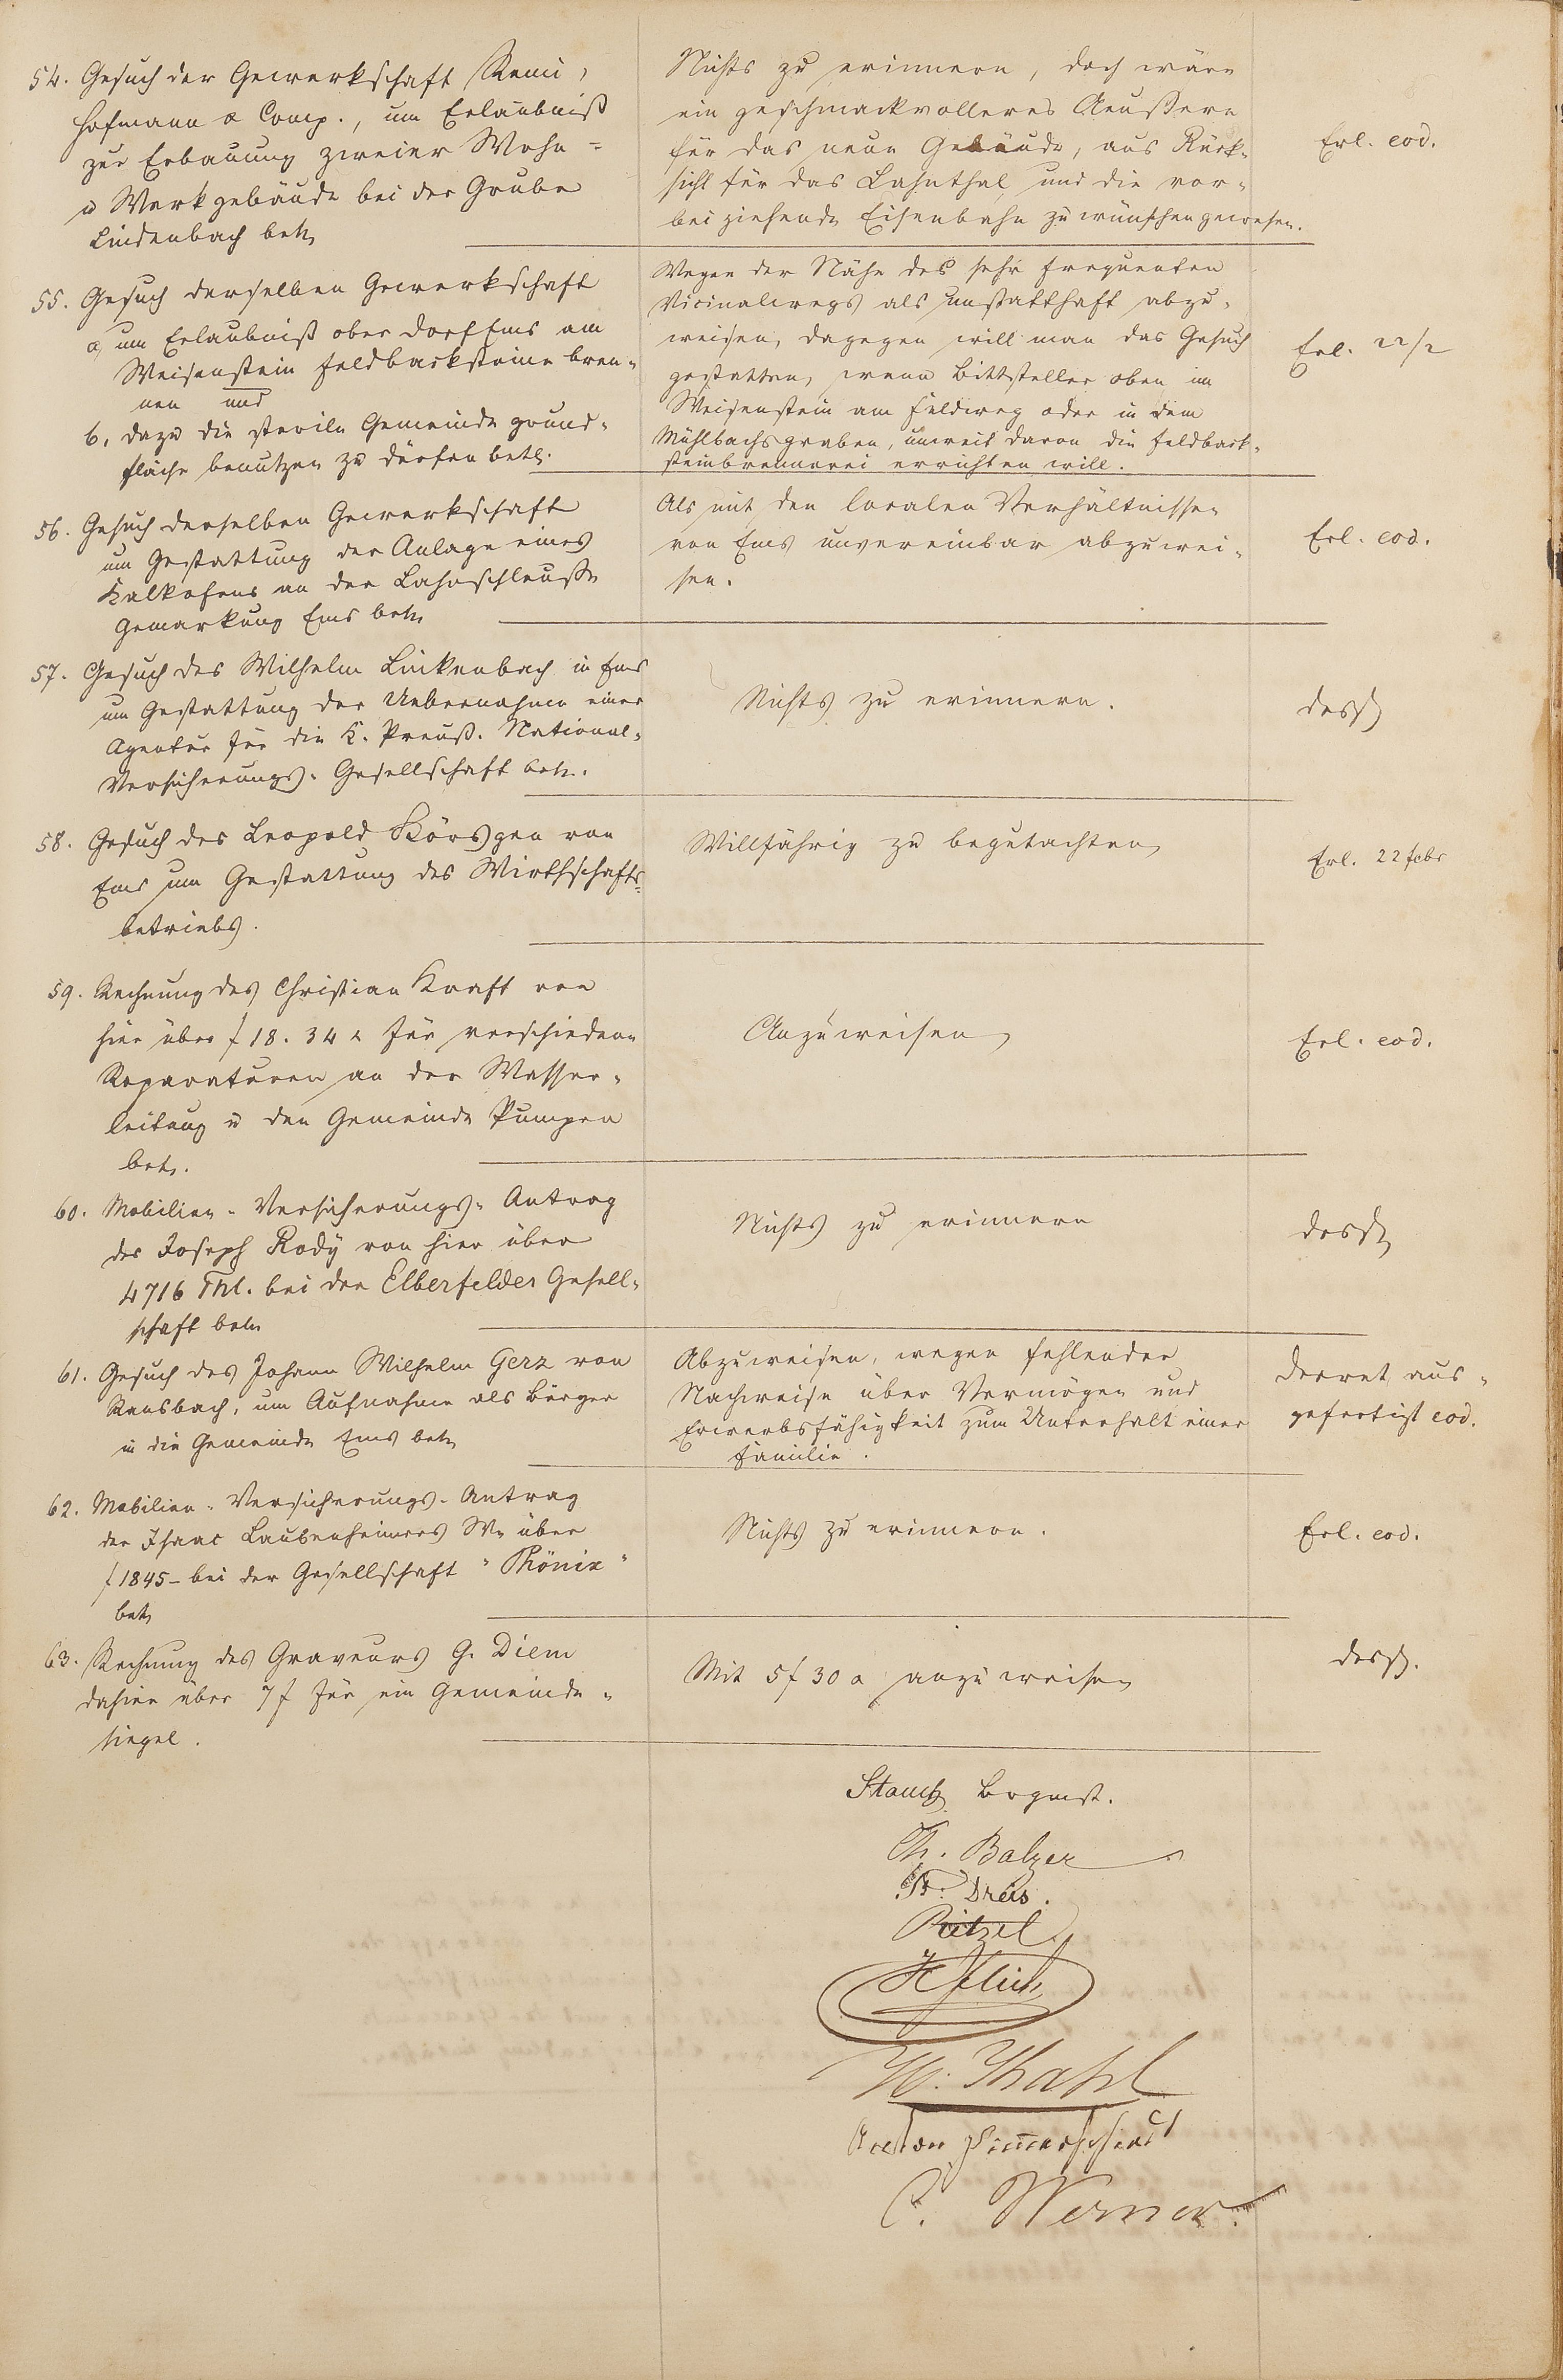 54. Gesuch der Gewerkschaft Remi,
Hofmann & Comp., um Erlaubniß
zur Erbauung zweier Wohn-
u Werkgebäude bei der Grube
Lindenbach betr.
Nichts zu erinnern, doch wäre
ein geschmackvolleres Aeußere
für das neue Gebäude, aus Rück-
sicht für das Lahnthal und die vor-
bei ziehende Eisenbahn zu wünschen gewesen.
Erl. eod.
55. Gesuch derselben Gewerkschaft
a, um Erlaubniß ober Dorf Ems am
Weisenstein Feldbacksteine bren-
nen und
b, dazu die sterile Gemeinde grund-
fläche benutzen zu dürfen betr.
Wegen der Nähe des sehr frequenten
Vicinalwegs als unstatthaft abzu-
weisen, dagegen will man das Gesuch
gestatten, wenn Bittsteller oben im
Weisenstein am Feldweg oder in dem
Mühlbachsgraben, unweit davon die Feldback-
steinbrennerei errichten will.
Erl. 22/2
56. Gesuch derselben Gewerkschaft
um Gestattung der Anlage eines
Kalkofens an der Lahnschleuße
Gemarkung Ems betr.
Als mit den localen Verhältnissen
von Ems unvereinbar abzuwei-
sen.
Erl. eod.
57. Gesuch des Wilhelm Linkenbach in Ems
um Gestattung der Uebernahme einer
Agentur für die K. Preuß. National-
Versicherungs-Gesellschaft betr.
Nichts zu erinnern.
desgl
58. Gesuch des Leopold Körsgen von
Ems um Gestattung des Wirthschafts-
betriebs.
Willfährig zu begutachten
Erl. 22 Febr
59. Rechnung des Christian Kraft von
hier über f 18. 34 x für verschiedene
Reparaturen an der Wasser-
leitung u den Gemeinde Pumpen
betr.
Anzuweisen
Erl. eod.
60. Mobilien-Versicherungs-Antrag
des Joseph Rody von hier über
4716 Thl. bei der Elberfelder Gesell-
schaft betr.
Nichts zu erinnern
desgl
61. Gesuch des Johann Wilhelm Gerz von
Ransbach, um Aufnahme als Bürger
in die Gemeinde Ems betr
Abzuweisen, wegen fehlender
Nachweise über Vermögen und
Erwerbsfähigkeit zum Unterhalt einer
Familie.
Decret aus-
gefertigt eod.
62. Mobilien-Versicherungs-Antrag
der Isaac Laubenheimers We über
f 1845 - bei der Gesellschaft "Phönix"
betr
Nichts zu erinnern.
Erl. eod.
63. Rechnung des Graveurs G. Diem
dahier über 7 f für ein Gemeinde-
siegel.
Mit 5 f 30 x anzuweisen
desgl.
Bgmst.
Th. Balzer
Fr. Dreis.
Pitzel
H. Thahl
Anton
C. Werner